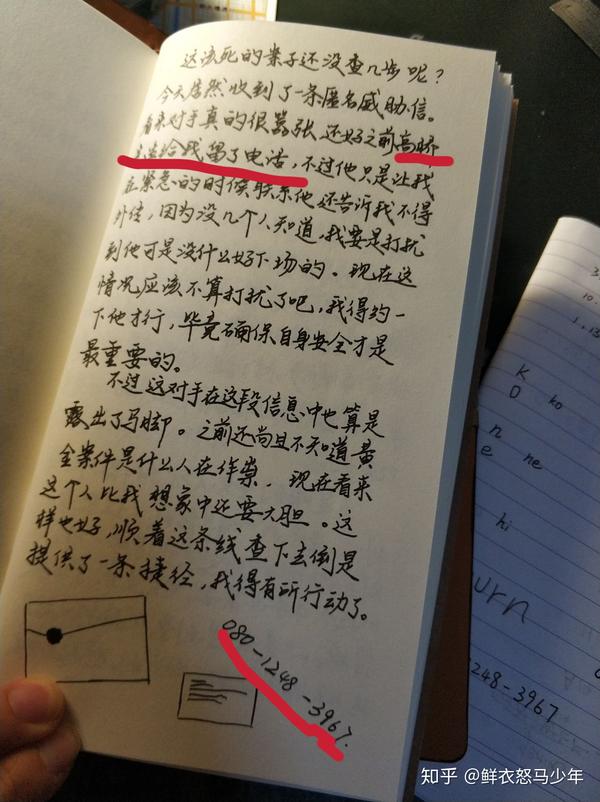 这该死的案子还没查几步呢？
今天居然收到了一条匿名威胁信。
看来对手真的很嚣张，还好之前高桥
给我留了电话，不过他只是让我
在紧急的时候联系他，还告诉我不得
外传，因为没几个人知道，我要是打扰
到他可是没什么好下场的。现在这
情况应该不算打扰了吧，我得约一
下他才行，毕竟确保自身安全才是
最重要的。
不过这对手在这段信息中也算是
露出了马脚。之前还尚且不知道黄
金案件是什么人在作案，现在看来
这个人比我想象中还要大胆。这
样也好，顺着这条线查下去倒是
提供了一条捷径，我得有所行动了。
080-1248-3967.
3
10.
1.13
K ko
O
n
e ne
hi
urn
1248-3967
知乎 @鲜衣怒马少年